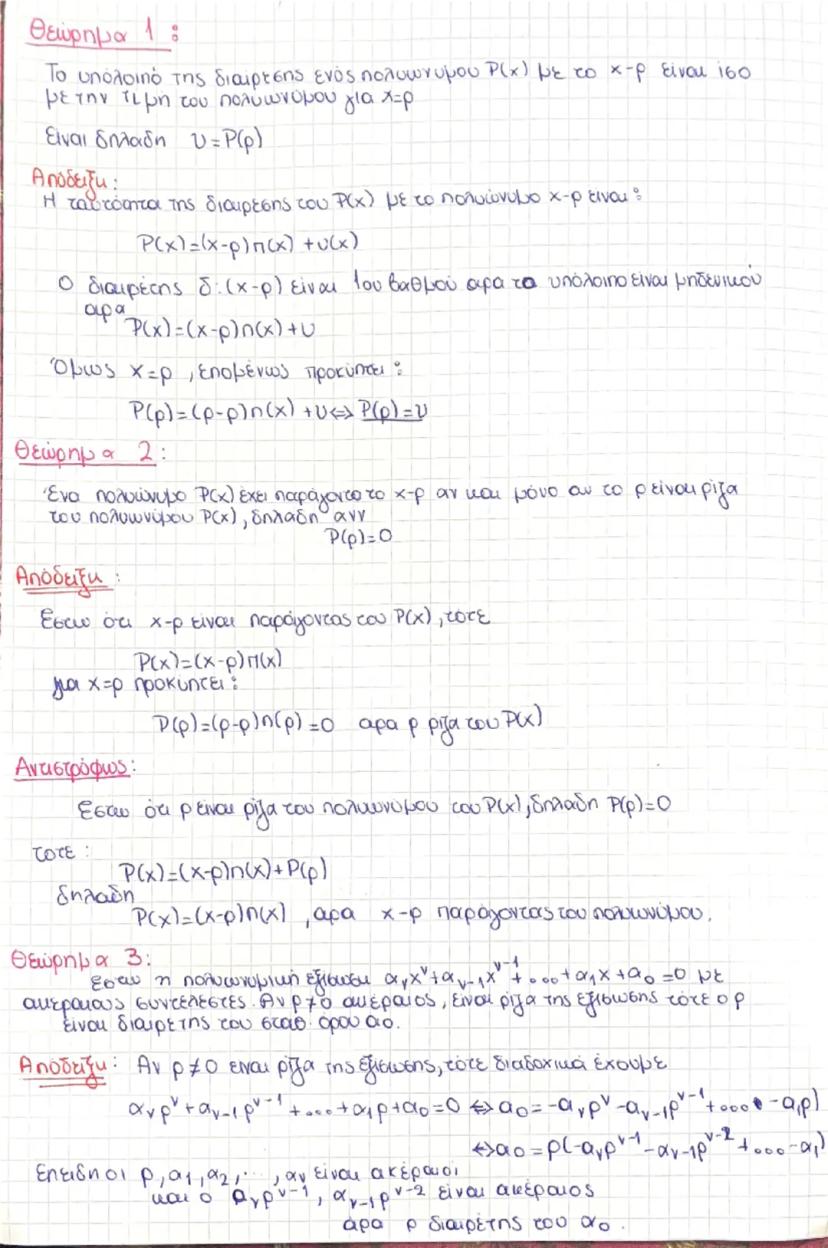 Θεώρημα 1:
Το υπόλοιπό της διαιρεσης ενός πολυωνυμου P(x) με το x-ρ είναι ίσο
με την τιμη του πολυωνύμου για x=ρ
Είναι δηλαδη υ=P(ρ)
Απόδειξη:
Η ταυτότητα της διαιρεσης του P(x) με το πολυώνυμο x-ρ ειναι:
P(x)=(x-ρ)π(x)+υ(x)
Ο διαιρέτης δ:(x-ρ) είναι 1ου βαθμού αρα το υπόλοιπο είναι μηδενικού
αρα
P(x)=(x-ρ)π(x)+υ
Όμως x=ρ, επομένως προκύπτει:
P(ρ)=(ρ-ρ)π(x)+υ⇔P(ρ)=υ
Θεώρημα 2:
Ένα πολυώνυμο P(x) έχει παράγοντα το x-ρ αν και μόνο αν το ρ είναι ρίζα
του πολυωνύμου P(x), δηλαδή ανν
P(ρ)=0
Απόδειξη:
Εστω ότι x-ρ είναι παράγοντας του P(x), τότε
P(x)=(x-ρ)π(x)
για x=ρ προκυπτει:
P(ρ)=(ρ-ρ)π(ρ)=0 αρα ρ ρίζα του P(x)
Αντιστρόφως:
Εστω ότι ρ είναι ρίζα του πολυωνύμου του P(x), δηλαδή P(ρ)=0
τοτε:
P(x)=(x-ρ)π(x)+P(ρ)
δηλαδη
P(x)=(x-ρ)π(x), αρα x-ρ παράγοντας του πολυωνύμου.
Θεώρημα 3:
Εστω η πολυωνυμική εξίσωση α_νx^ν+α_{ν-1}x^{ν-1}+...+α_1x+α_0=0 με
ακέραιους συντελεστές. Αν ρ≠0 ακέραιος, είναι ρίζα της εξίσωσης τότε ο ρ
είναι διαιρέτης του σταθ. όρου α_0.
Απόδειξη: Αν ρ≠0 ειναι ρίζα της εξίσωσης, τότε διαδοχικά έχουμε
α_νρ^ν+α_{ν-1}ρ^{ν-1}+...+α_1ρ+α_0=0 ⇔α_0=-α_νρ^ν-α_{ν-1}ρ^{ν-1}+...-α_1ρ)
⇔α_0=ρ(-α_νρ^{ν-1}-α_{ν-1}ρ^{ν-2}+...-α_1)
Επειδη οι ρ, α_1, α_2, ..., α_ν είναι ακέραιοι
και ο α_νρ^{ν-1}, α_{ν-1}ρ^{ν-2} είναι ακέραιος
άρα ρ διαιρέτης του α_0.